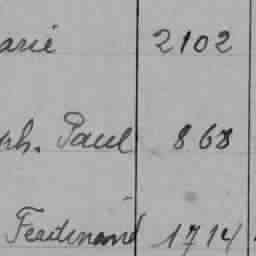 arie 2102
ph. Paul 868
Ferdinand 1714